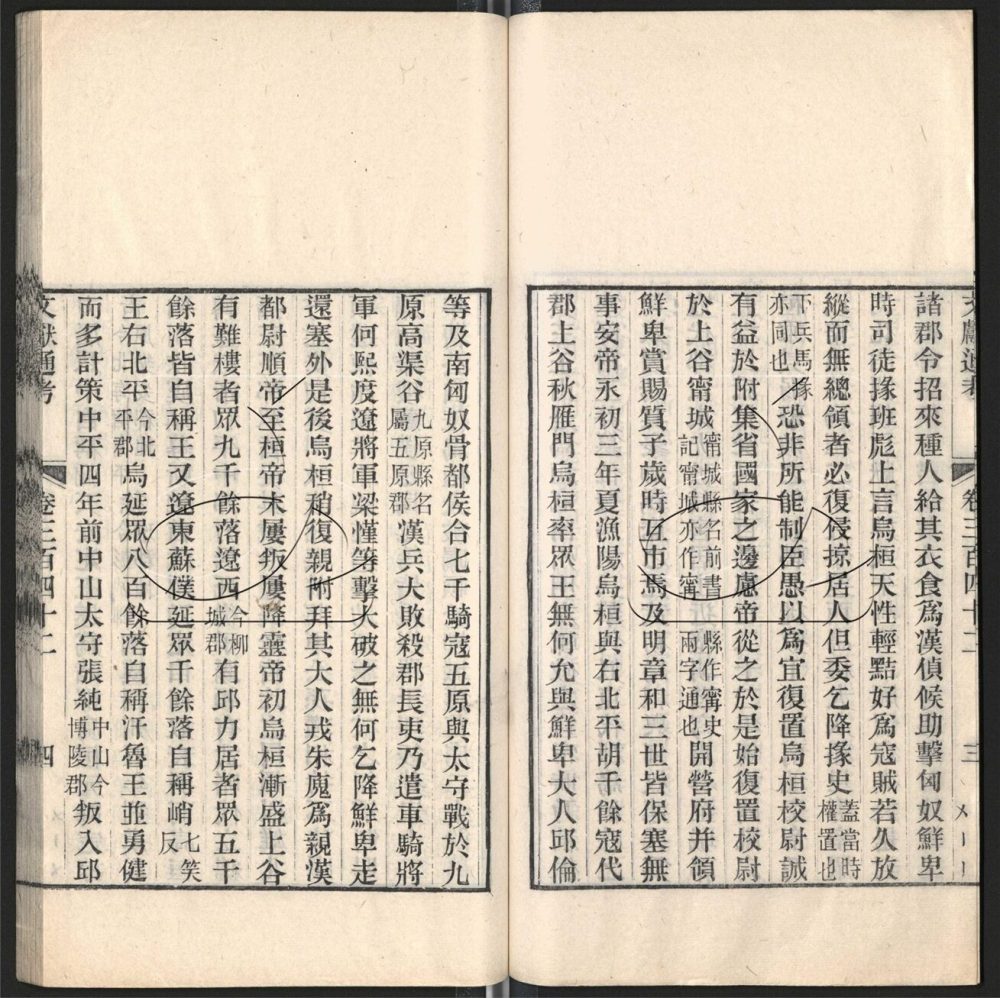 文獻通考 卷三百四十二 三
諸郡令招來種人給其衣食爲漢偵候助擊匈奴鮮卑
時司徒掾班彪上言烏桓天性輕黠好爲寇賊若久放
縱而無總領者必復侵掠居人但委乞降掾史蓋當時權置也
下兵馬掾亦同也恐非所能制臣愚以爲宜復置烏桓校尉誠
有益於附集省國家之邊慮帝從之於是始復置校尉
於上谷甯城甯城縣名前書記甯城亦作寗縣作寗史兩字通也開營府并領
鮮卑賞賜質子歲時互市焉及明章和三世皆保塞無
事安帝永初三年夏漁陽烏桓與右北平胡千餘寇代
郡上谷秋雁門烏桓率眾王無何允與鮮卑大人邱倫
等及南匈奴骨都侯合七千騎寇五原與太守戰於九
原高渠谷九原縣名屬五原郡漢兵大敗殺郡長吏乃遣車騎將
軍何熙度遼將軍梁慬等擊大破之無何乞降鮮卑走
還塞外是後烏桓稍復親附拜其大人戎朱廆爲親漢
都尉順帝至桓帝末屢叛屢降靈帝初烏桓漸盛上谷
有難樓者眾九千餘落遼西今柳城郡有邱力居者眾五千
餘落皆自稱王又遼東蘇僕延眾千餘落自稱峭七笑反
王右北平今北平郡烏延眾八百餘落自稱汗魯王並勇健
而多計策中平四年前中山太守張純中山今博陵郡叛入邱
文獻通考 卷三百四十二 四